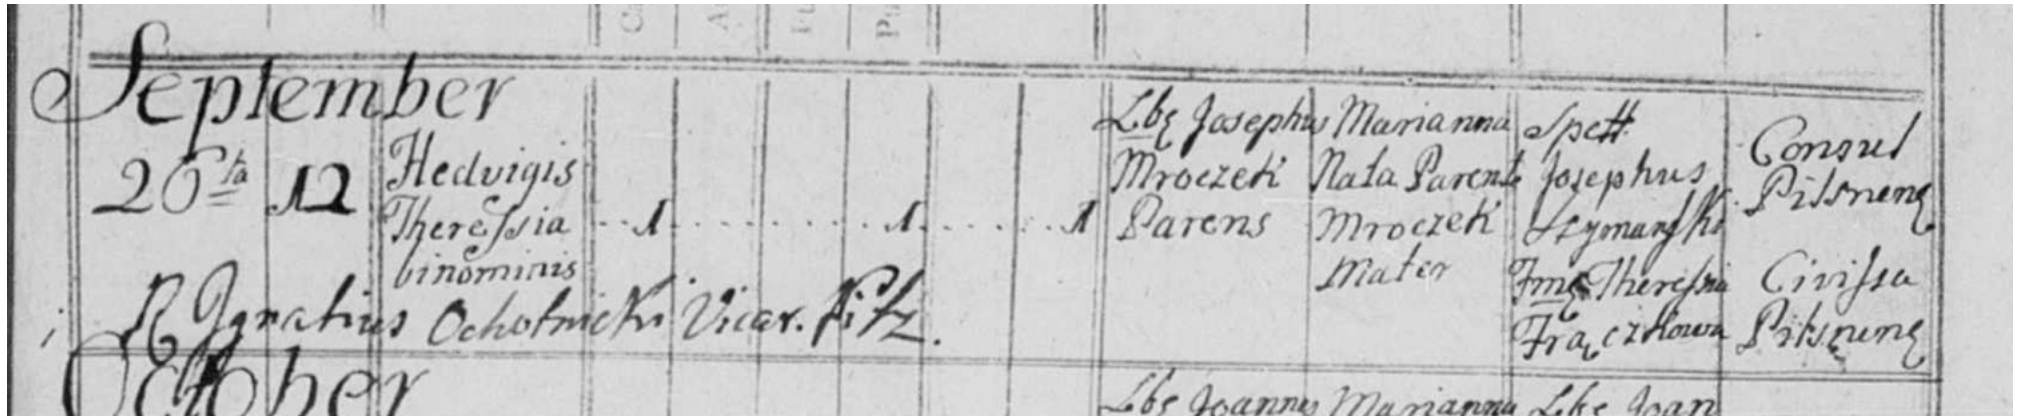 September
26ta 12 Hedvigis
Theressia
binominis
1 1 1
Lbę Josephus
Mroczek
Parens
Marianna
Nata Parente
Mroczek
Mater
Spett
Josephus
Szymański
Fmę Theressia
Frączkowa
Consul
Pilsnenę
Civissa
Pilsnenę
R Ignatius Ochotnicki Vicar. Pilz.
October
Lbę Joannes Marianna Lbę Joan